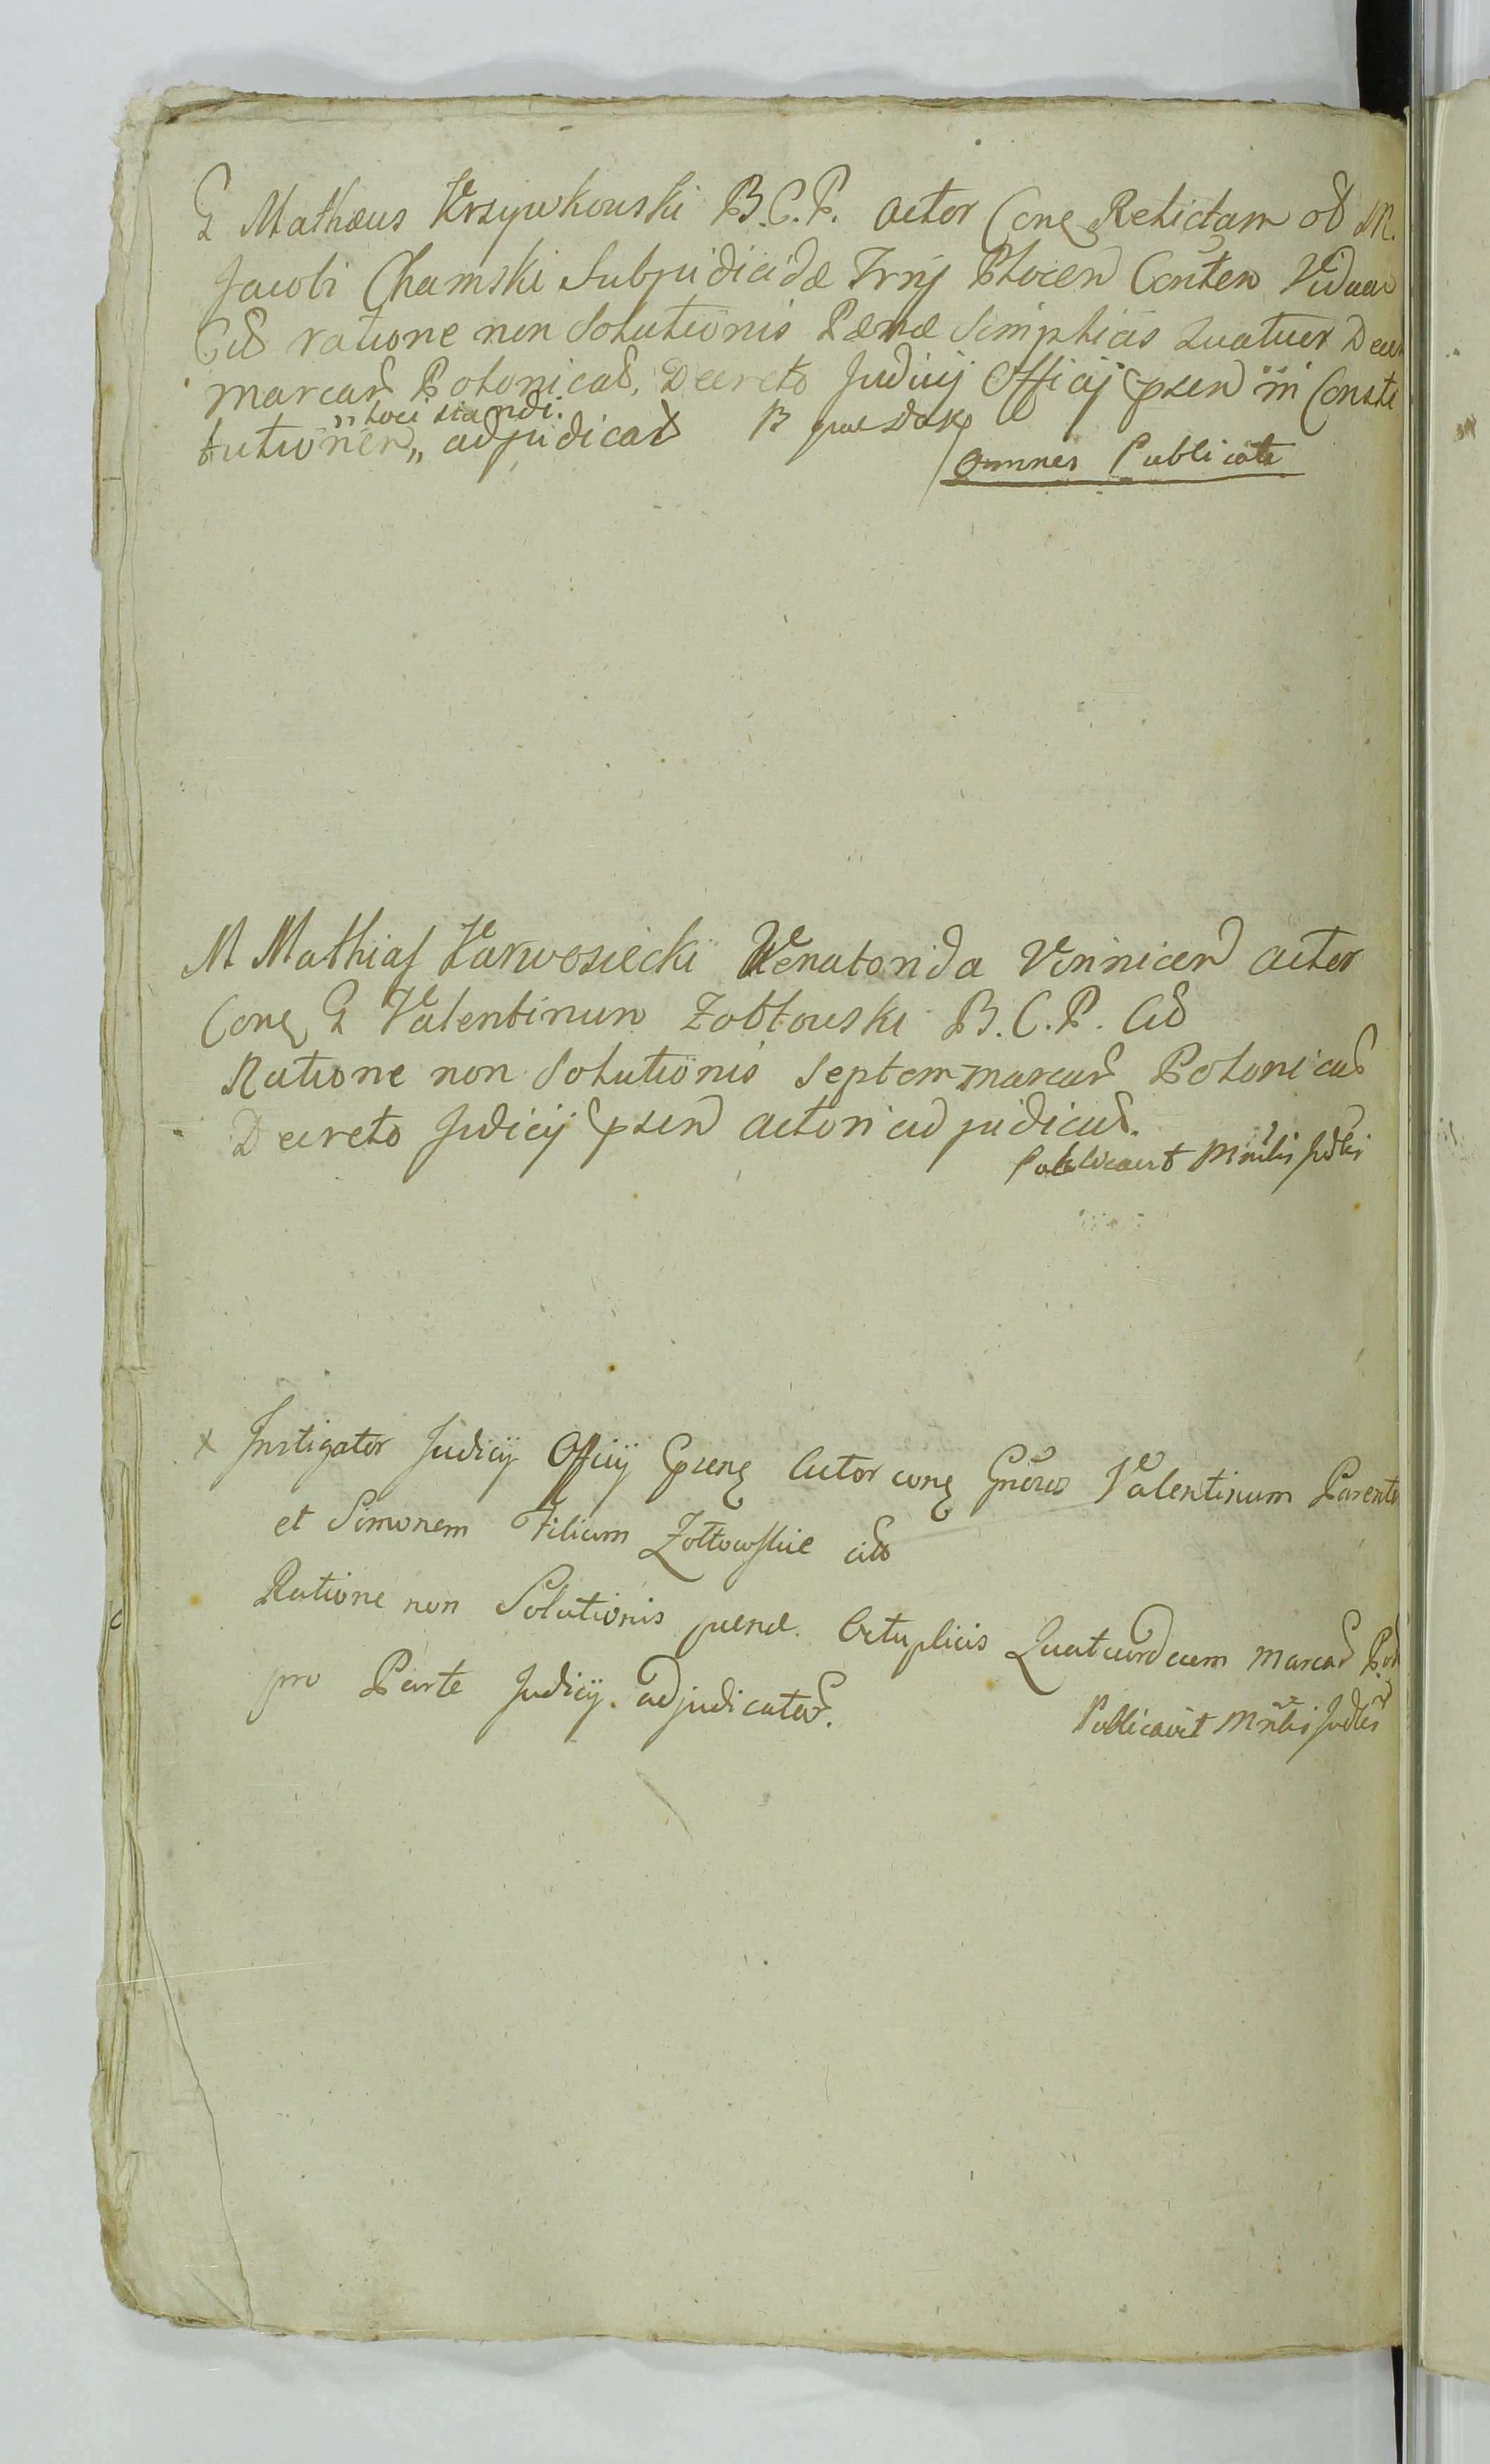 G Mathæus Krzywkowski B.C.P. actor Cone Relictam ol M.
Jacobi Chamski Subjudicidæ Trrij Plocen Conten Viduam
Cit ratione non Solutionis Pænæ Simplicis Quatuor Decem
marcar Polonical, Decreto Judicij Officij psen in Consti
"loci standi.
tutionen „ adjudicat
Omnes Publicate
M Mathias Karwosiecki Venatorida Vinnicen actor
Cone G Valentinum Zołtowski B.C.P. Cit
Ratione non Solutionis Septem marcar Polonical
Decreto Judicij psen actori adjudicat.
Publicavit Mnlis Jdlis
x Instigator Judicij Officij psene Actor cone Gnosos Valentinum Parente
et Simonem Filium Zołtowskie cit
Ratione non Solutionis pænæ Octuplicis Quatuordecem marcar Pol
pro Parte Judicij adjudicatar.
Publicavit Mnlis Judlis